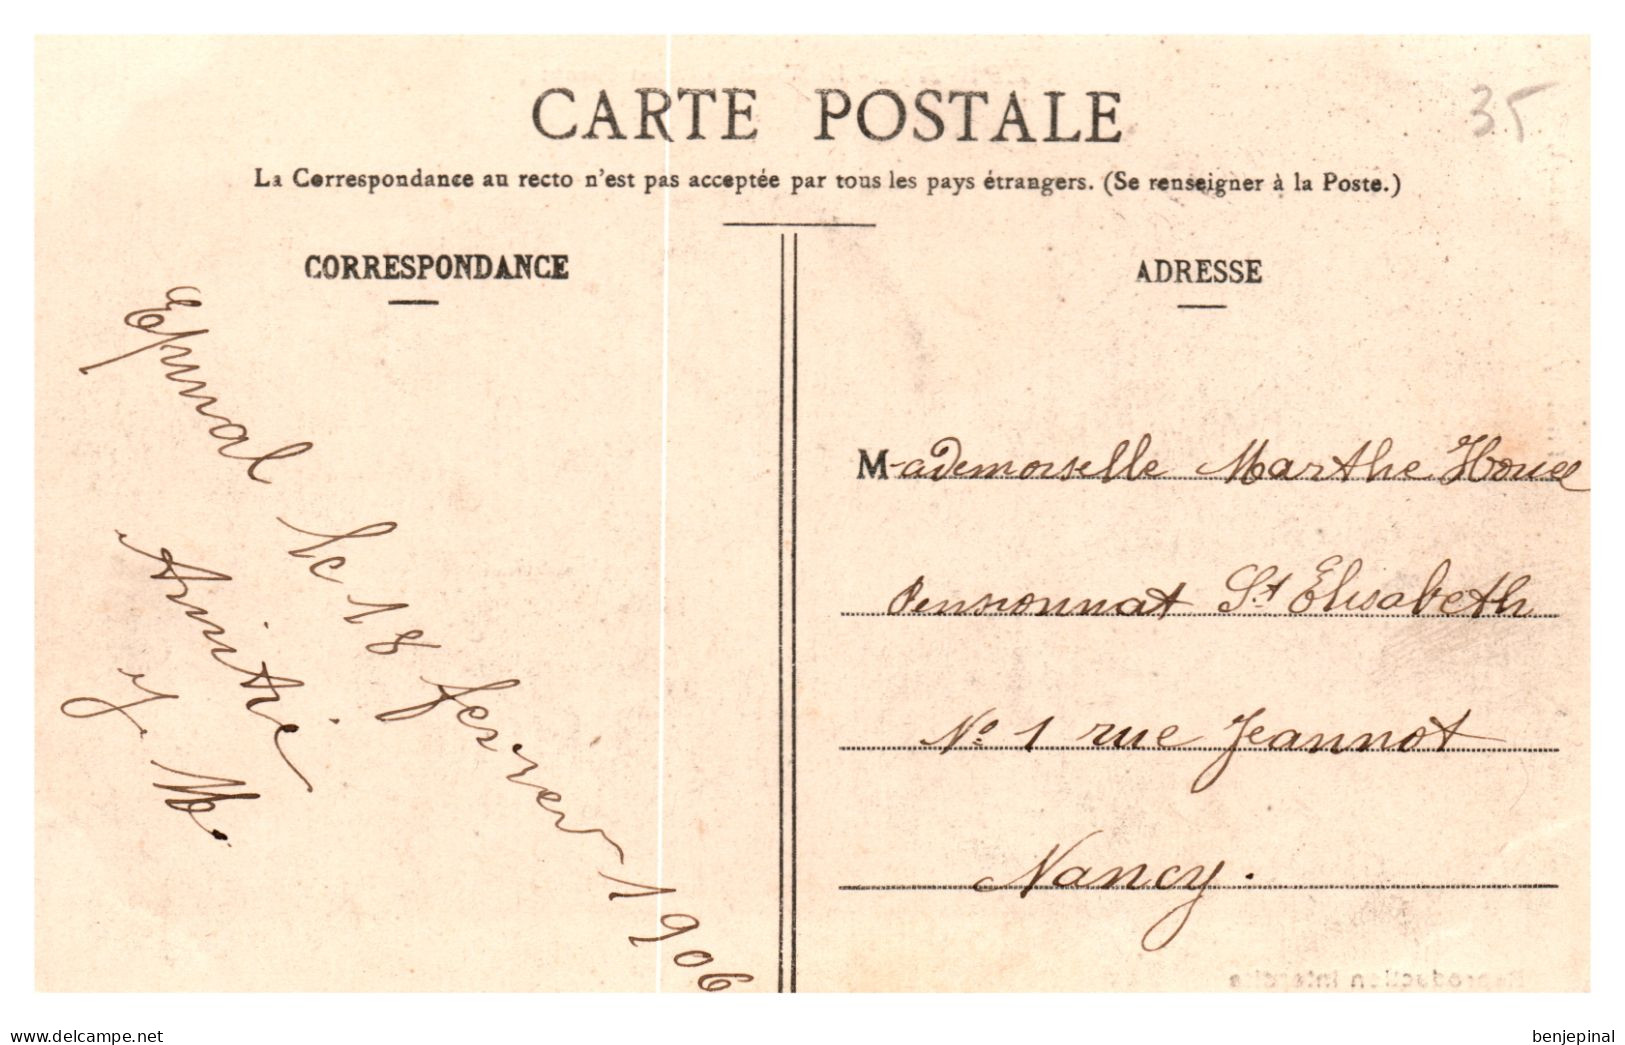 35
CARTE POSTALE
La Correspondance au recto n'est pas acceptée par tous les pays étrangers. (Se renseigner à la Poste.)
CORRESPONDANCE
Epinal le 18 fevrier 1906
Amitié
J. M.
ADRESSE
Mademoiselle Marthe Houel
Pensionnat St Elisabeth
No 1 rue Jeannot
Nancy.
Reproduction interdite
www.delcampe.net
benjepinal